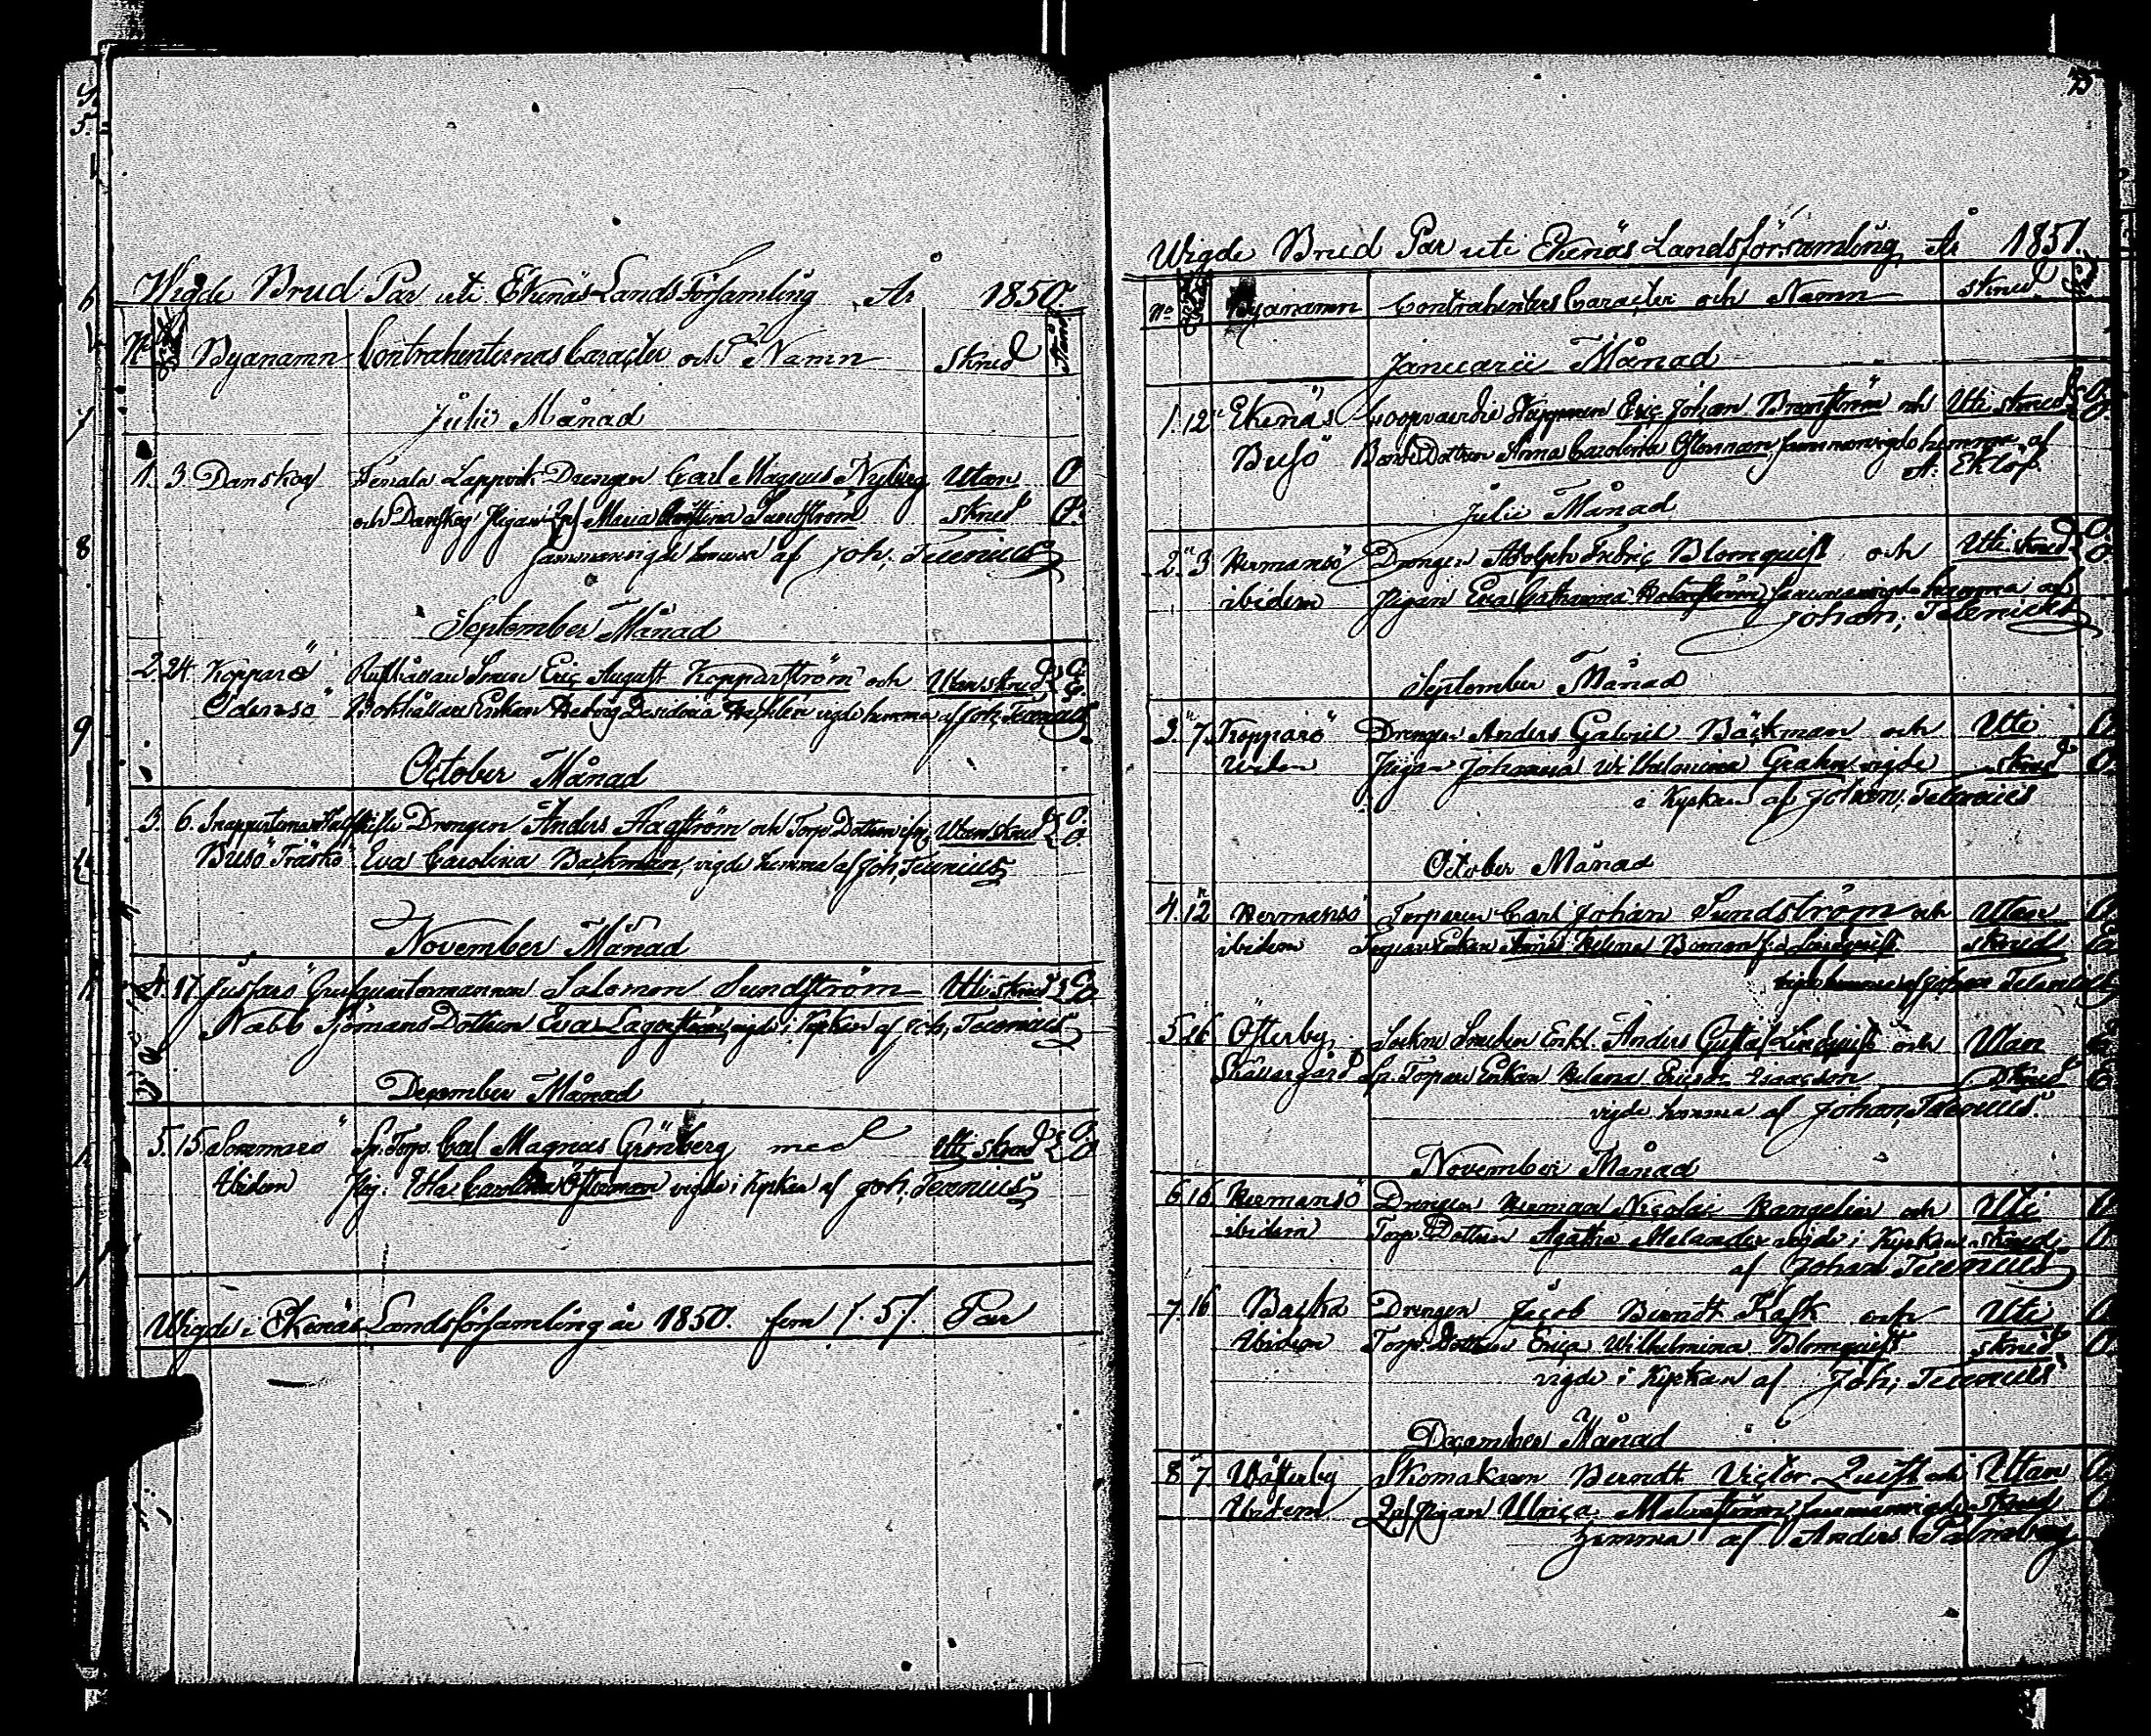 Wigde Brud Par uti Ekenäs Lands Församling År 1850.
No Byanamn Contrahenternas Caracter och Namn Skrud
Julii Månad
1. 3 Danskog Drengen Carl Magnus Nyberg Utan O
och Danskog Pigan Maria Christina Sandström skrud O.
sammanvigde hemma af Joh; Telenius
September Månad
2. 24. Kopparö Eric August Kopparström och Utan skrud
Odensö Bokhållare Enkan Hedvig Desideria vigde hemma af Joh; Telenius
October Månad
3. 6. Drengen Anders Hagström och Torp. Dottren Utan skrud O.
Busö Träskö Eva Carolina Backman, vigde hemma af Joh; Telenius
November Månad
4. 17. Jussarö Salomon Sundström Uti skrud
Nabb Sjömans Dottren Eva Lagerström, vigde i Kyrkan af Joh; Telenius
December Månad
5. 15. Sommarö Sp. Torp. Carl Magnus Grönberg med Uti skrud
Ibidem Pig: Carolina Österman vigde i Kyrkan af Joh. Telenius
Wigde i Ekenäs Landsförsamling år 1850. fem /.5./. Par
Wigde Brud Par uti Ekenäs Landsförsamling År 1851.
No Byanamn Contrahenters Caracter och Namn Skrud
Januarii Månad
1. 12 Ekenäs Coopvaerdie Skepparen Eric Johan och Uti skrud O.
Busö Bonde Dottren Anna Carolina Österman sammanvigde hemma af
A: Eklöf.
Julii Månad
2. 3 Hermansö Drengen Adolph Fredric Blomquist och Uti skrud O.
ibidem Pigan Eva Catharina sammanvigde hemma af
Johan; Telenius
September Månad
3. 7. Kopparö Drengen Anders Gabriel Bäckman och Uti O.
Pigan Johanna Wilhelmina Grahn vigde skrud O.
i Kyrkan af Johan; Telenius
October Månad
4. 12 Hermansö Torparen Carl Johan Sundström och Utan
ibidem Enkan Helena skrud
vigde hemma af Johan Telenius
5. 26 Österby Sockne Enkl. Anders Gustaf Lindqvist och Utan
Skåvargård Sp. Torpare Enkan Helena Ericsdr Isaacson skrud
vigde hemma af Johan; Telenius.
November Månad
6. 16 Hermansö Drengen Herman Nicolai och Uti
ibidem Torp. Dottren Agatha Melander vigde i Kyrkan skrud.
af Johan Telenius
7. 16 Basha Drengen Jacob Berndt Kask och Uti
Ibidem Torp. Dottren Erica Wilhelmina Blomquist skrud.
vigde i Kyrkan af Joh; Telenius
December Månad
8. 7. Wästerby Skomakaren Berndt Victor Quist och Utan
Ibidem Pigan Ulrica Malmström, sammanvigde skrud
hemma af Anders Palmberg